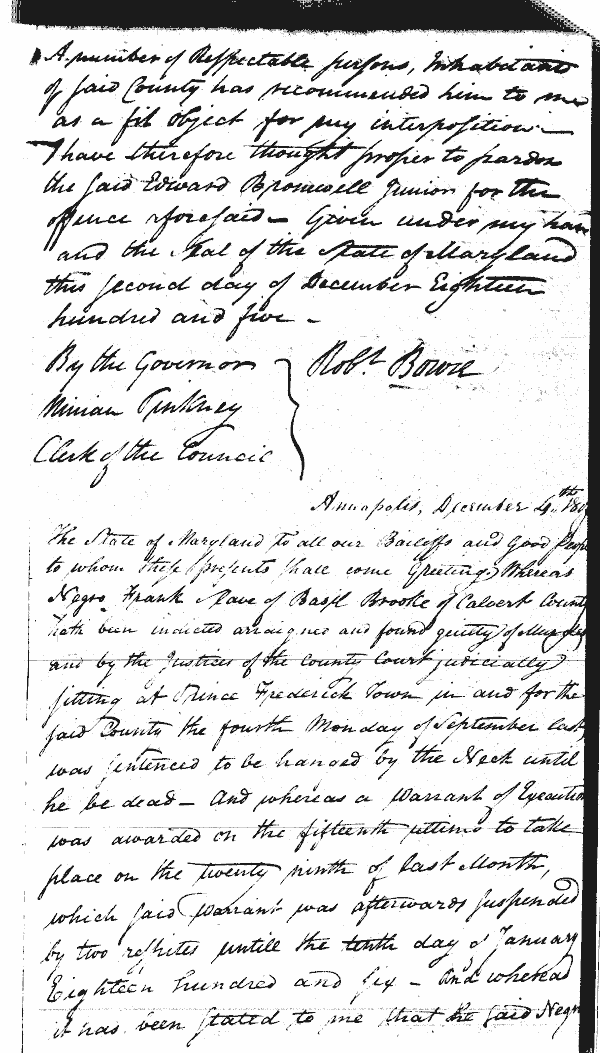 A number of Respectable persons, Inhabitants
of said County has recommended him to me
as a fit Object for my interposition —
I have therefore thought proper to pardon
the said Edward Bromwell Junior for the
offence aforesaid — Given under my han
and the Seal of the State of Maryland
this second day of December Eighteen
hundred and five —
By the Governor
Robt Bowie
Ninian Pinkney
Clerk of the Council
Annapolis, December 4th 180
The State of Maryland to all our Bailiffs and Good Peop
to whom these presents shall come Greeting, Whereas
Negro Frank slave of Basil Brooke of Calvert County
hath been indicted arraigned and found guilty of
and by the Justices of the County Court judicially
sitting at Prince Frederick Town in and for the
said County the fourth Monday of September last,
was sentenced to be hanged by the Neck until
he be dead — And whereas a Warrant of Execution
was awarded on the fifteenth ultimo to take
place on the twenty ninth of last Month,
which said Warrant was afterwards suspended
by two respites untill the tenth day of January
Eighteen hundred and six — And whereas
it has been stated to me that the said Negro